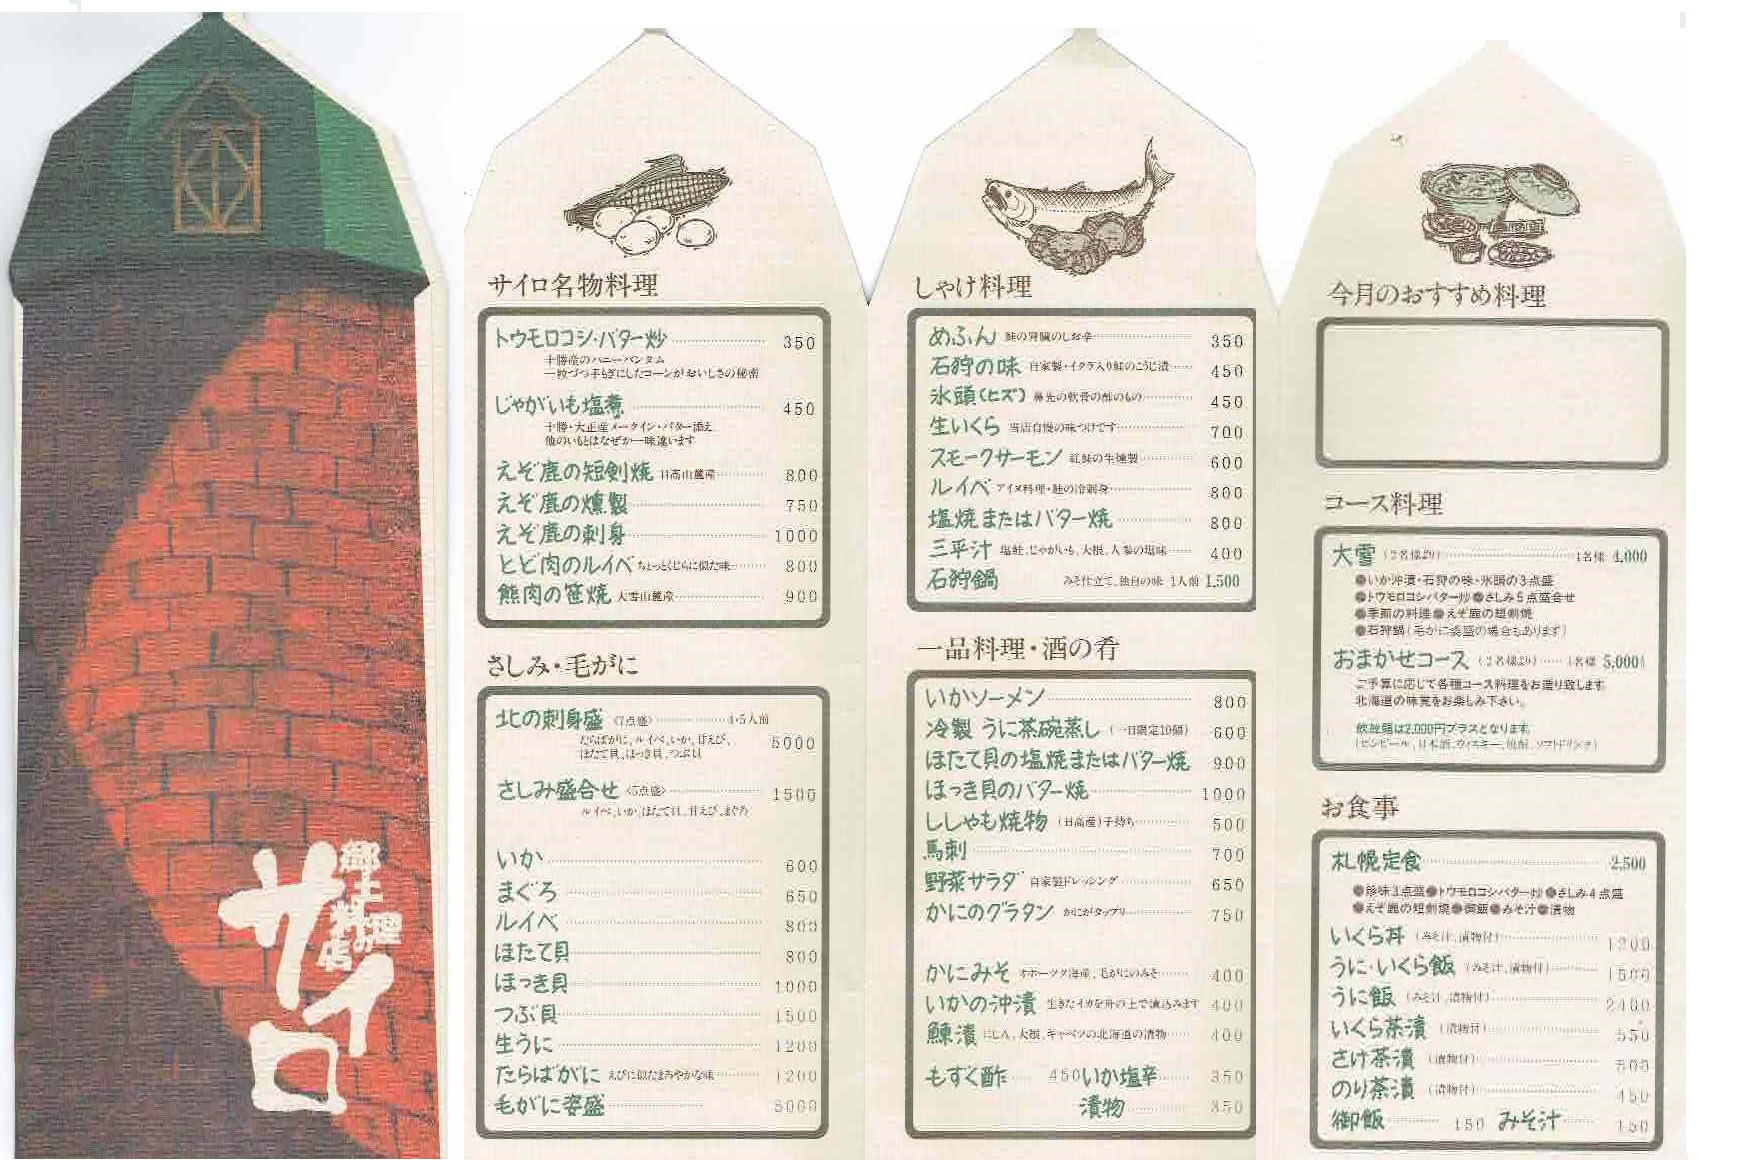 郷土料理の店
サイロ
サイロ名物料理
トウモロコシ・バター炒 350
十勝産のハニーバンタム
一粒づつ手もぎにしたコーンがおいしさの秘密
じゃがいも塩煮 450
十勝・大正産メークイン・バター添え
他のいもとはなぜか一味違います
えぞ鹿の短剣焼 日高山麓産 800
えぞ鹿の燻製 750
えぞ鹿の刺身 1000
とど肉のルイベ ちょっとくじらに似た味 800
熊肉の笹焼 大雪山麓産 900
さしみ・毛がに
北の刺身盛 〈7点盛〉 4・5人前
たらばがに、ルイベ、いか、甘えび、 5000
ほたて貝、ほっき貝、つぶ貝
さしみ盛合せ 〈5点盛〉 1500
ルイベ、いか、ほたて貝、甘えび、まぐろ
いか 600
まぐろ 650
ルイベ 800
ほたて貝 800
ほっき貝 1000
つぶ貝 1500
生うに 1200
たらばがに えびに似たまろやかな味 1200
毛がに姿盛 5000
しゃけ料理
めふん 鮭の腎臓のしお辛 350
石狩の味 自家製・イクラ入り鮭のこうじ漬 450
氷頭(ヒズ) 鼻先の軟骨の酢のもの 450
生いくら 当店自慢の味つけです 700
スモークサーモン 紅鮭の生燻製 600
ルイベ アイヌ料理・鮭の冷刺身 800
塩焼またはバター焼 800
三平汁 塩鮭、じゃがいも、大根、人参の塩味 400
石狩鍋 みそ仕立て、独自の味 1人前 1,500
一品料理・酒の肴
いかソーメン 800
冷製 うに茶碗蒸し (一日限定10個) 600
ほたて貝の塩焼またはバター焼 900
ほっき貝のバター焼 1000
ししゃも焼物 (日高産)子持ち 500
馬刺 700
野菜サラダ 自家製ドレッシング 650
かにのグラタン かにがタップリ 750
かにみそ オホーツク海産、毛がにのみそ 400
いかの沖漬 生きたイカを舟の上で漬込みます 400
鰊漬 にしん、大根、キャベツの北海道の漬物 400
もずく酢 450 いか塩辛 350
漬物 350
今月のおすすめ料理
コース料理
大雪 (2名様より) 1名様 4,000
●いか沖漬・石狩の味・氷頭の3点盛
●トウモロコシバター炒●さしみ5点盛合せ
●季節の料理●えぞ鹿の短剣焼
●石狩鍋(毛がに姿盛の場合もあります)
おまかせコース (2名様より) 1名様 5,000
ご予算に応じて各種コース料理をお造り致します
北海道の味覚をお楽しみ下さい。
飲放題は2,000円プラスとなります
(ビンビール、日本酒、ウィスキー、焼酎、ソフトドリンク)
お食事
札幌定食 2,500
●珍味3点盛●トウモロコシバター炒●さしみ4点盛
●えぞ鹿の短剣焼●御飯●みそ汁●漬物
いくら丼 (みそ汁、漬物付) 1200
うに・いくら飯 (みそ汁、漬物付) 1500
うに飯 (みそ汁、漬物付) 2400
いくら茶漬 (漬物付) 550
さけ茶漬 (漬物付) 500
のり茶漬 (漬物付) 450
御飯 150 みそ汁 150